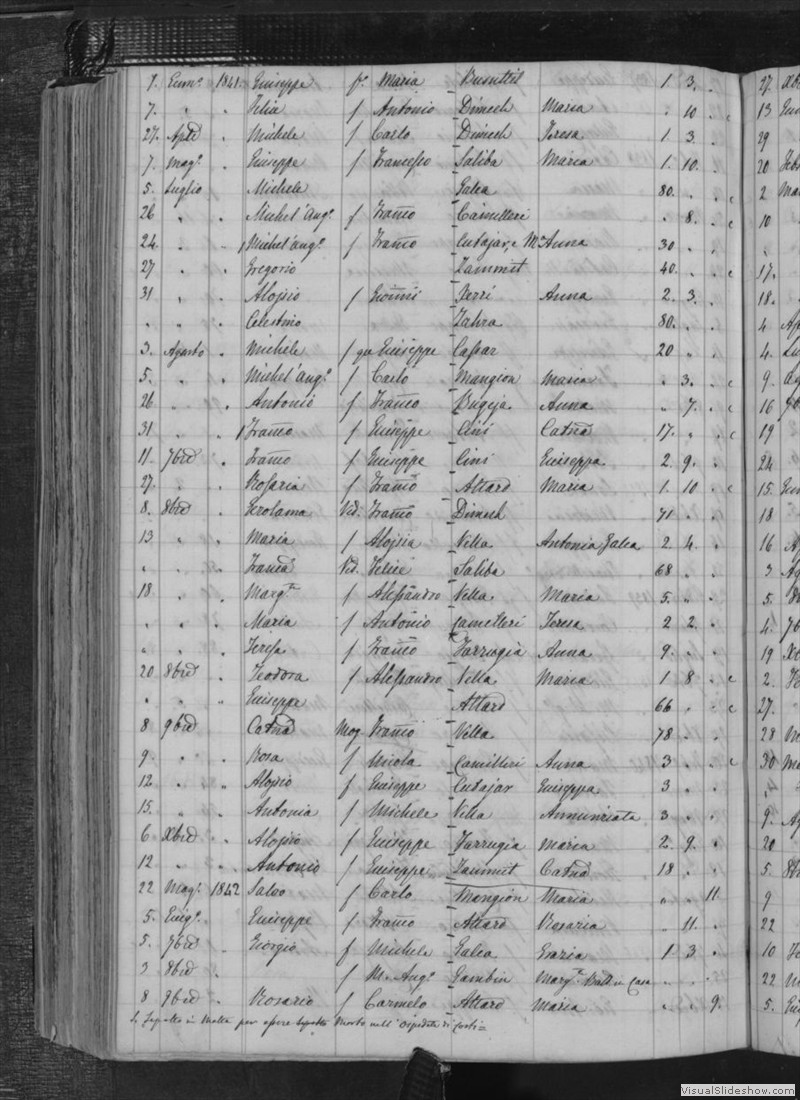 7. Genn.º 1841. Giuseppe f.º Maria Busuttil 1. 3. .
7. " . Felia f Antonio Dimech Maria . 10 . c
27. Aple . Michele f Carlo Dimech Teresa 1. 3. .
7. Magº . Giuseppe f Francesco Saliba Maria 1. 10. .
5. Luglio . Michele Galea 80. . . c
26 " . Michel'angº f Franco Camilleri . 8. . c
24. " . Michel'angº f Franco Cutajar, e Mª Anna 30 . .
27 " . Gregorio Zammit 40. . . c
31 " . Aloisio f Gioanni Xerri Anna 2. 3. .
" " . Celestino Zahra 80. . .
3. Agosto . Michele f qm Giuseppe Cassar 20 " .
5. " . Michel'angº f Carlo Mangion Maria . 3. . c
26 " . Antonio f Franco Bugeja Anna " 7. . c
31 " . Franco f Giuseppe Cini Catnª 17. " . c
11. 7bre . Franco f Giuseppe Cini Giuseppa 2. 9. .
27. " . Rosaria f Franco Attard Maria 1. 10 . c
8. 8bre . Gerolama Vid. Franco Dimech 71 . .
13 " . Maria f Aloisia Vella Antonia Galea 2 4. .
" " . Francª Vid. Felice Saliba 68 . .
18 " . Margta f Alessandro Vella Maria 5. . .
" " . Maria f Antonio Camilleri Teresa 2 2. .
" " . Teresa f Franco Farrugia Anna 9. . .
20 8bre . Teodora f Alessandro Vella Maria 1 8 . c
" " . Giuseppe Attard 66 . . c
8 9bre . Catnª Mog. Franco Vella 78 . .
9. " . Rosa f Nicola Camilleri Anna 3 . . c
12 " " Aloisio f Giuseppe Cutajar Giuseppa 3 . .
15. " " Antonia f Michele Vella Annunziata 3 . .
6 Xbre . Aloisio f Giuseppe Farrugia Maria 2. 9. .
12 " . Antonio f Giuseppe Zammit Catnª 18 . .
22 Magº 1842 Salvo f Carlo Mangion Maria " " 11
5. Giugº . Giuseppe f Franco Attard Rosaria " 11. .
5. 7bre . Giorgio f Michele Galea Grazia 1. 3. .
3 8bre . f M. Angº Gambin Margta in Casa . . .
8 9bre . Rosario f Carmelo Attard Maria . . 9.
in Malta per essere morto nell'Ospedale di
27. Xb
13 Gen
29
20 Feb
2 Ma
10
17.
18.
4 Ap
4. Lu
9. Ag
16 9b
19
24
15. Gen
18
16 A
3 Ag
5. 8b
4. 7b
19 Xb
2. Fe
27.
28
30 Ma
9. Ag
20
5. 8b
9
22
10
22 M
5. Giu
VisualSlideshow.com